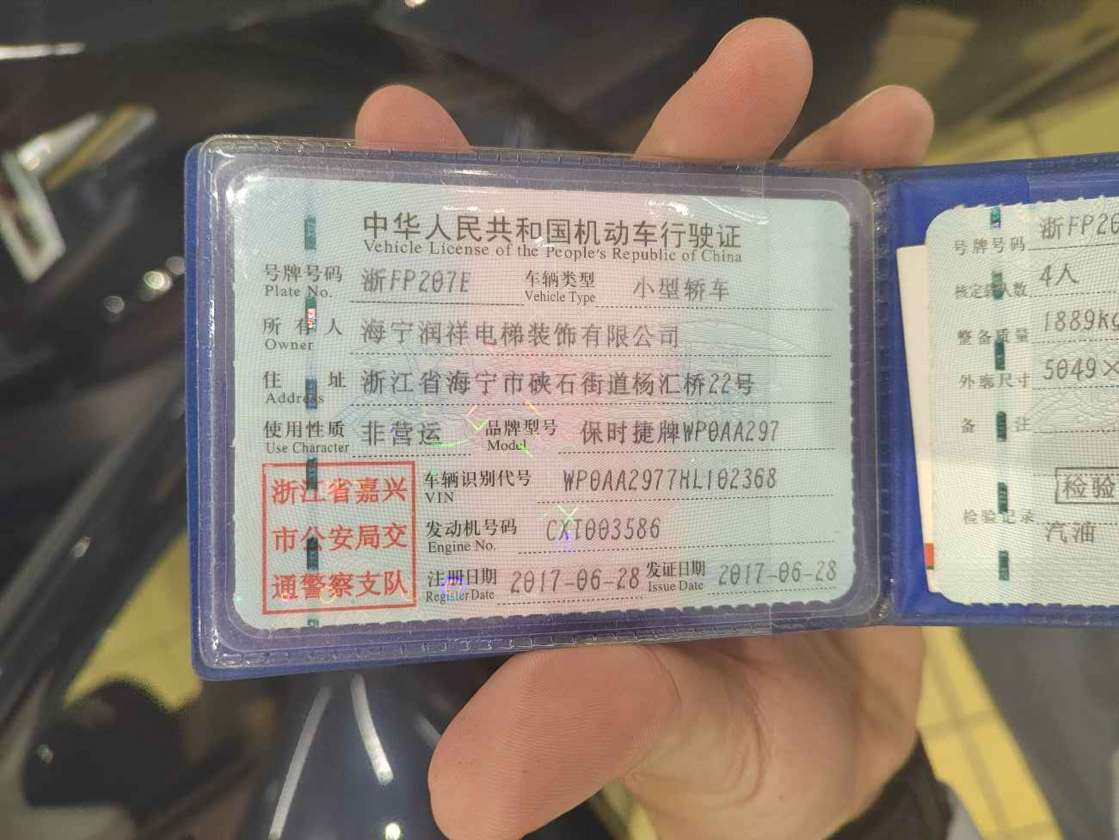 中华人民共和国机动车行驶证
Vehicle License of the People's Republic of China
号牌号码 浙FP207E 车辆类型 小型轿车
Plate No. Vehicle Type
所有人 海宁润祥电梯装饰有限公司
Owner
住址 浙江省海宁市硖石街道杨汇桥22号
Address
使用性质 非营运 品牌型号 保时捷牌WP0AA297
Use Character Model
浙江省嘉兴
市公安局交
通警察支队
车辆识别代号 WP0AA2977HL102368
VIN
发动机号码 CXT003586
Engine No.
注册日期 2017-06-28 发证日期 2017-06-28
Register Date Issue Date
号牌号码 浙FP20
核定载人数 4人
整备质量 1889K
外廓尺寸 5049×
备注
检验
检验记录
汽油